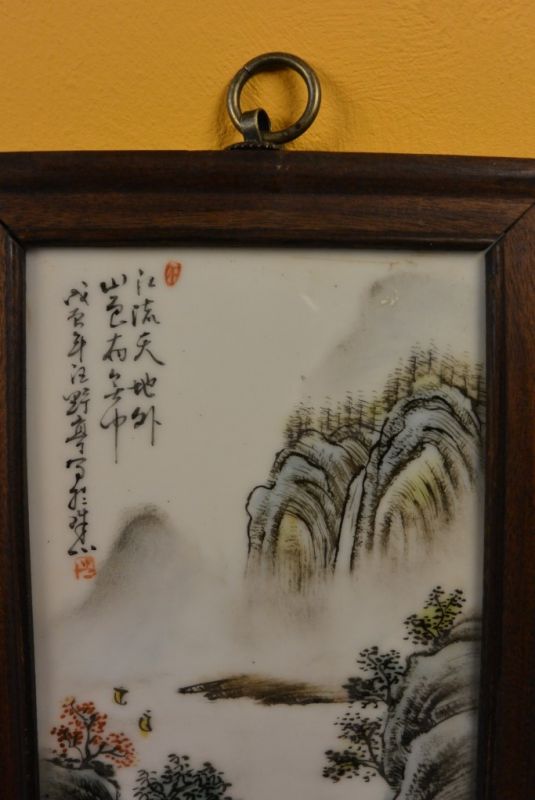 江流天地外
山色有無中
戊寅年汪野亭写於珠山